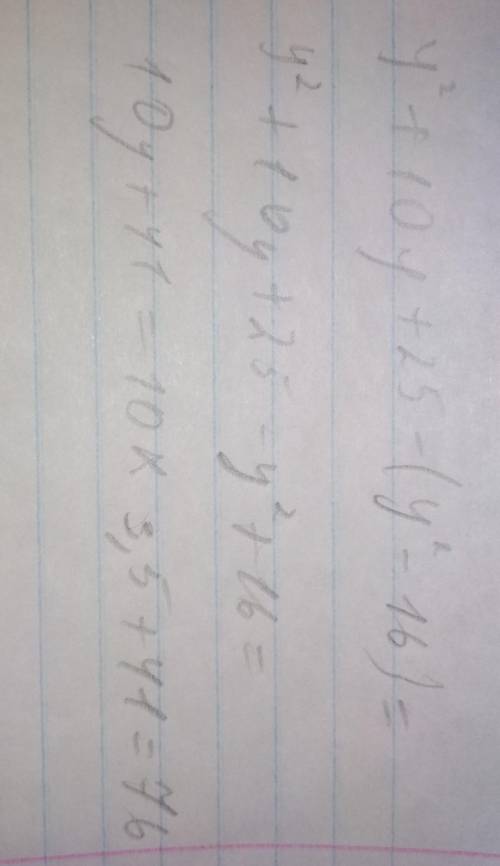 y² + 10y + 25 - (y² - 16) =
y² + 10y + 25 - y² + 16 =
10y + 41 = 10 × 3,5 + 41 = 76